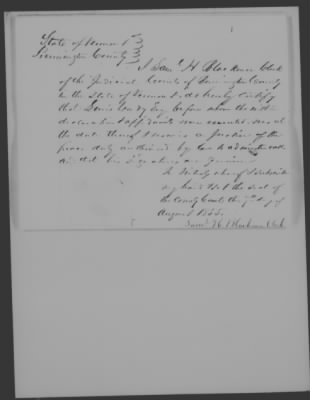 State of Vermont
Bennington County
I Saml. H. Blackmer Clerk
of the Judicial Courts of Bennington County
in the State of Vermont do hereby certify
that Esq before whom the
declaration & affidavits were executed was at
the date thereof & now is a Justice of the
peace duly authorized by law to administer oaths
and that his Signatures are genuine
In Witness whereof I subscribe
my hand & set the seal of
the County Court this 7th day of
August 1855.
Saml. H. Blackmer Clerk